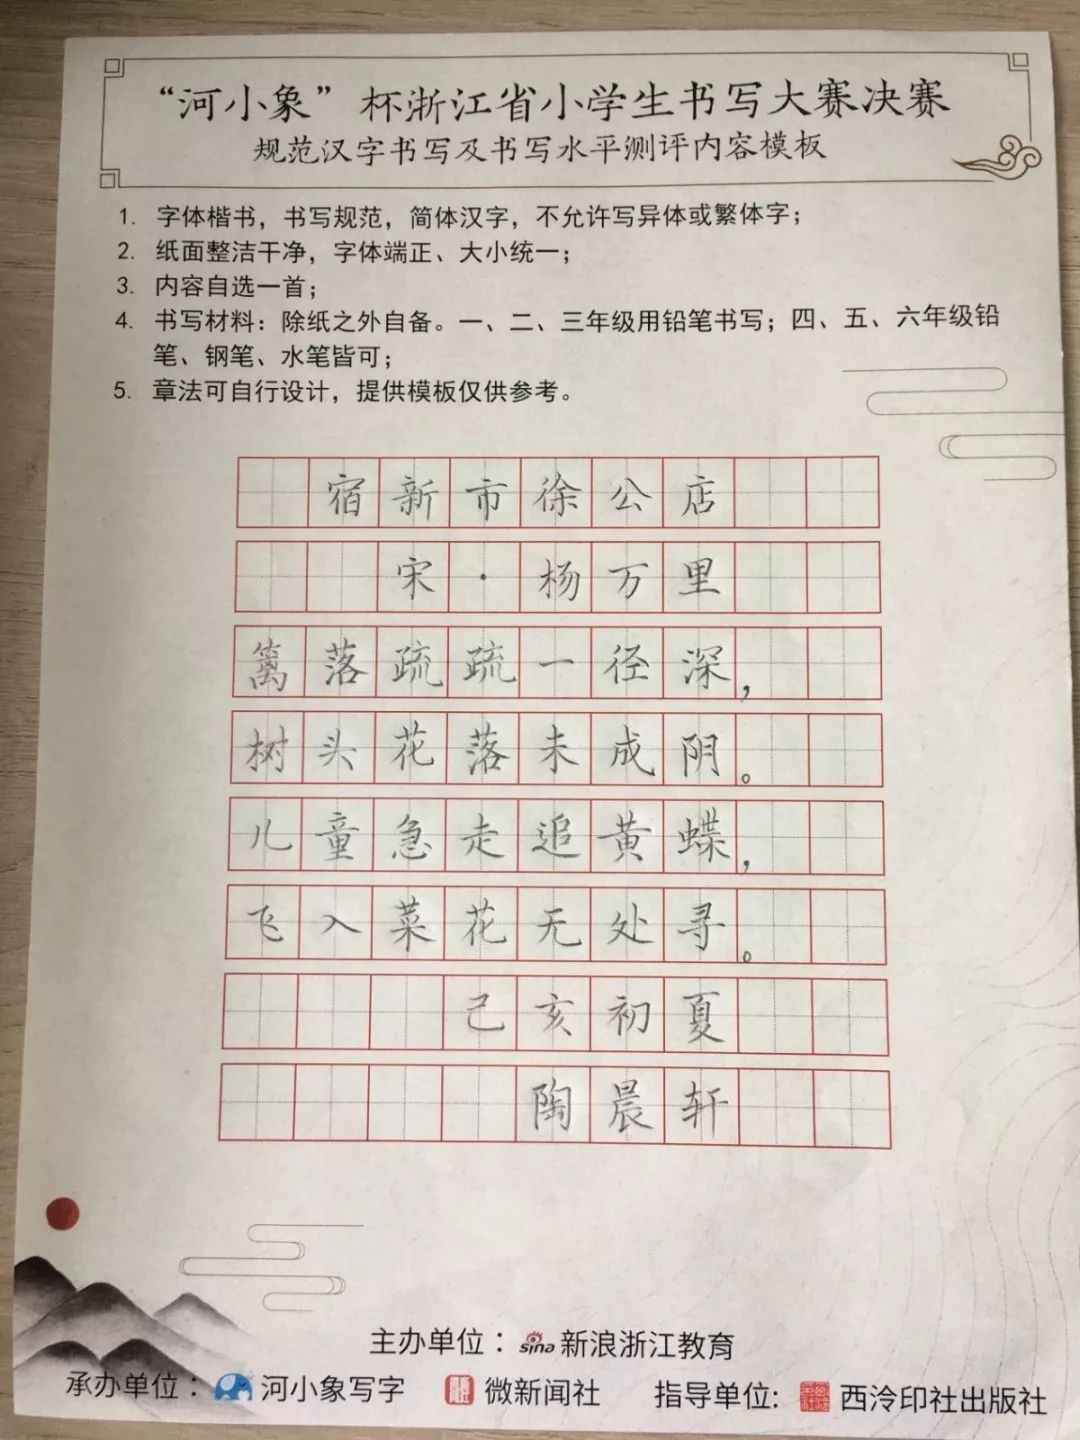 “河小象”杯浙江省小学生书写大赛决赛
规范汉字书写及书写水平测评内容模板
1. 字体楷书，书写规范，简体汉字，不允许写异体或繁体字；
2. 纸面整洁干净，字体端正、大小统一；
3. 内容自选一首；
4. 书写材料：除纸之外自备。一、二、三年级用铅笔书写；四、五、六年级铅
笔、钢笔、水笔皆可；
5. 章法可自行设计，提供模板仅供参考。
宿新市徐公店
宋·杨万里
篱落疏疏一径深，
树头花落未成阴。
儿童急走追黄蝶，
飞入菜花无处寻。
己亥初夏
陶晨轩
主办单位：sina新浪浙江教育
承办单位：河小象写字 微新闻社 指导单位:西泠印社出版社